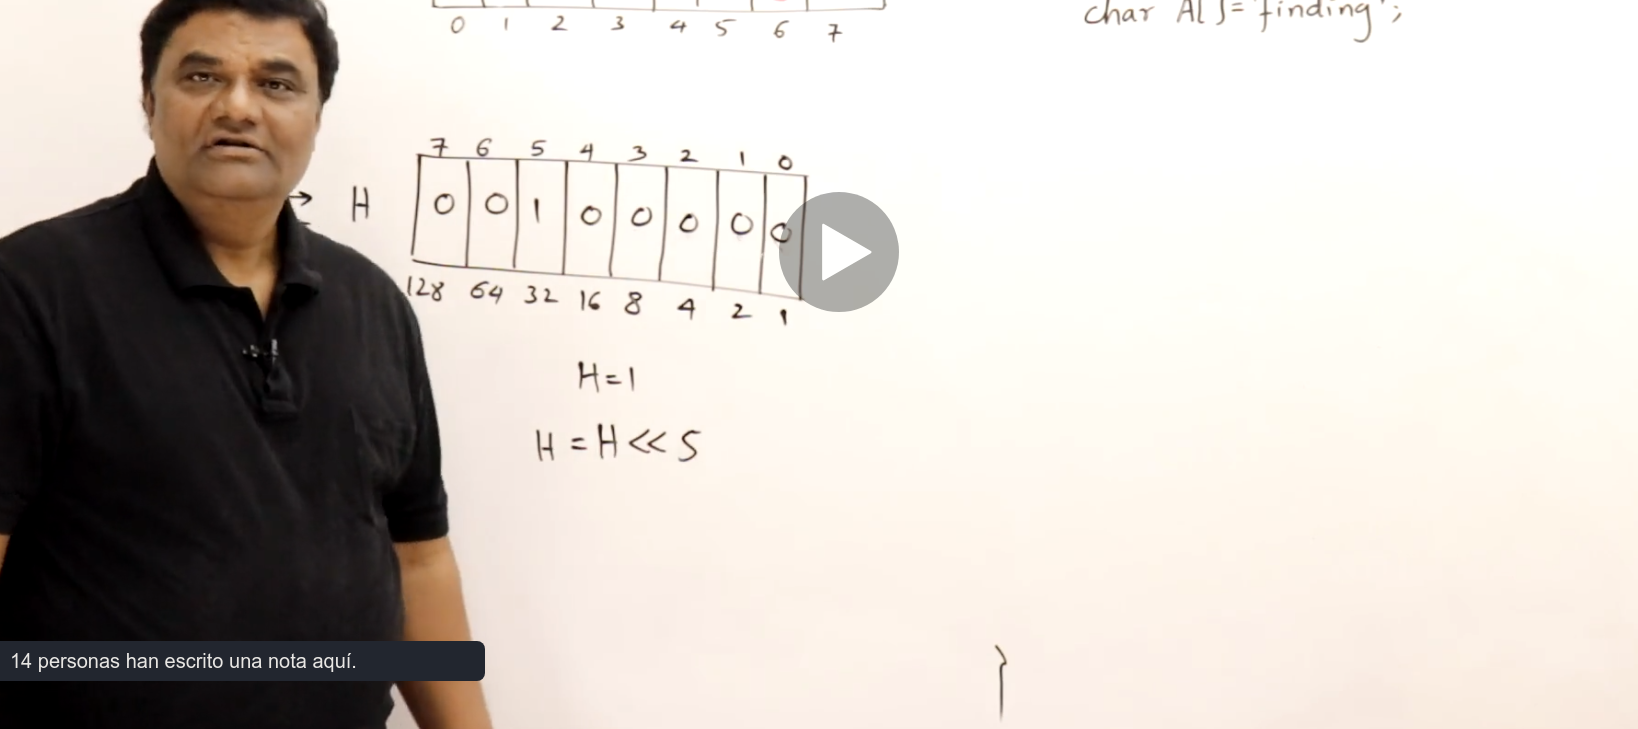 0 1 2 3 4 5 6 7
char A[]="finding";
7 6 5 4 3 2 1 0
→ H 0 0 1 0 0 0 0 0
128 64 32 16 8 4 2 1
H=1
H=H<<5
14 personas han escrito una nota aquí.